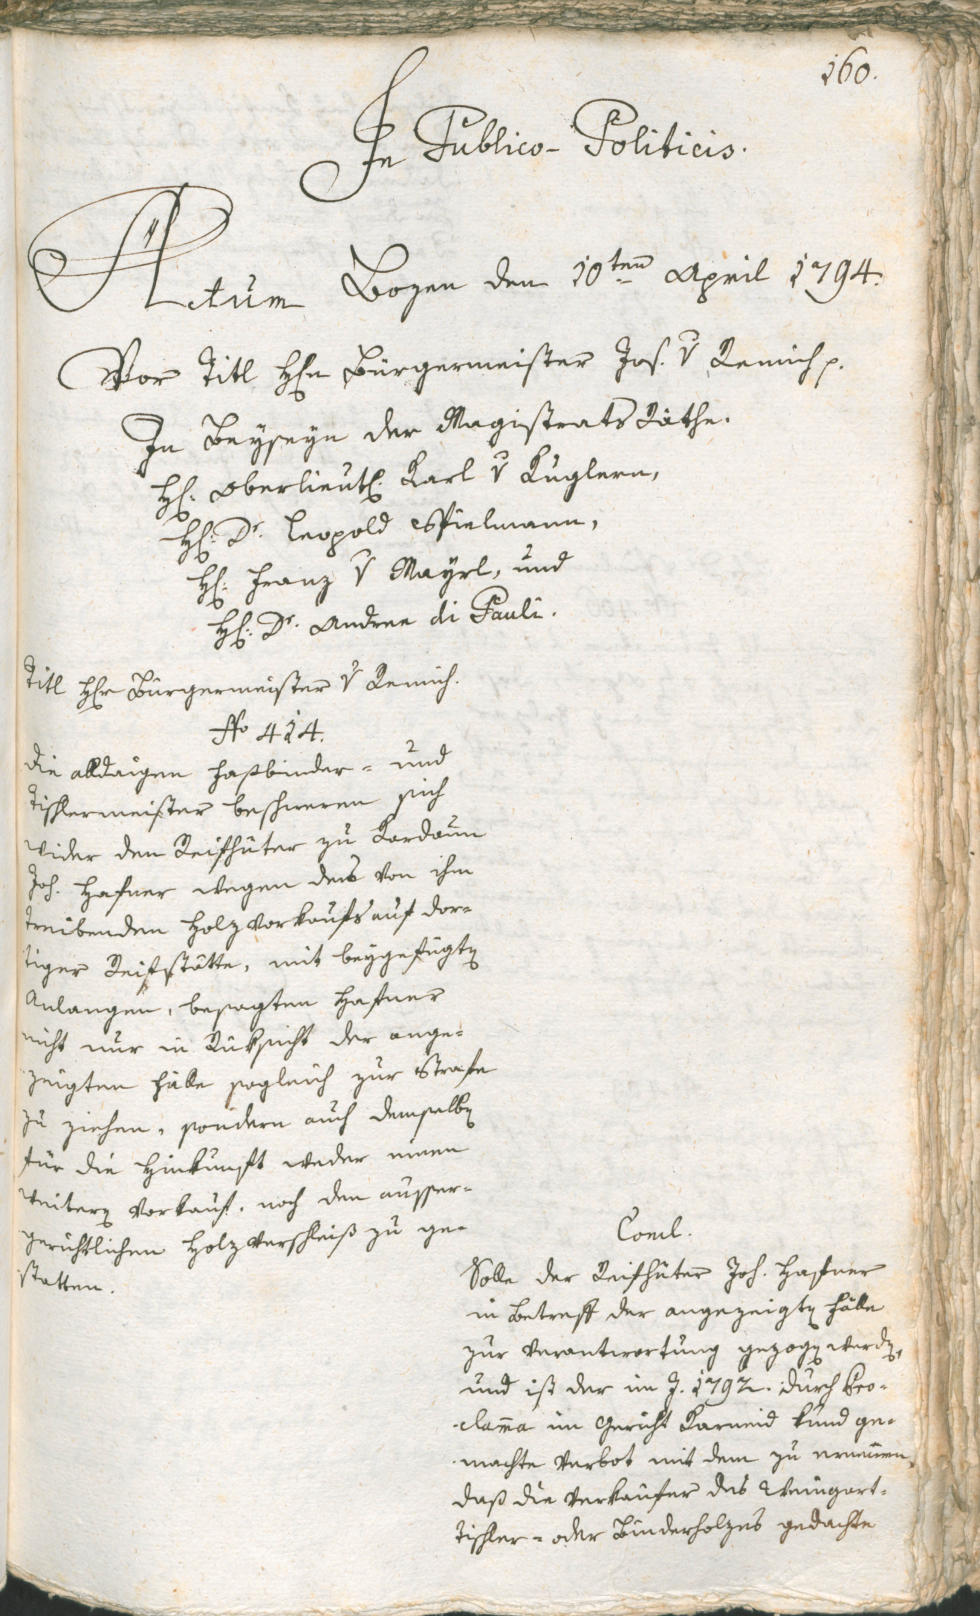 160.
In Publico-Politicis.
Actum Bozen den 10ten April 1794.
Vor Titl Hℓn Bürgermeister Jos. v Remich p.
In Beyseyn der Magistrats Räthe.
Hℓ: Oberlieutℓ: Karl v Kuglern,
Hℓ: Dr. Leopold Spielmann,
Hℓ: Franz v Mayrl, und
Hℓ: Dr. Andree di Pauli.
Titl Hℓr Bürgermeister v Remich.
No 414.
Die alldaigen Faßbinder- und
Tischlermeister beschweren sich
wider den Reifhüter zu Kardaun
Joh. Hafner wegen des von ihm
treibenden Holzvorkaufs auf dor-
tiger Reifstätte, mit beygefügtn
Anlangen, besagten Hafner
nicht nur in Rüksicht der ange-
zeigten Fälle sogleich zur Strafe
zu ziehen, sondern auch demselbn
für die Hinkunft weder einen
weitern Vorkauf, noch den ausser-
gerichtlichen Holzverschleiß zu ge-
statten.
Concl.
Solle der Reifhüter Joh. Hafner
in Betreff der angezeigtn Fälle
zur Verantwortung gezogn werdn,
und ist der im J. 1792. durch Pro-
clama im Gericht Karneid kund ge-
machte Verbot mit dem zu erneuern,
daß die Verkäufer des Weingart-
Tischler- oder Binderholzes gedachte